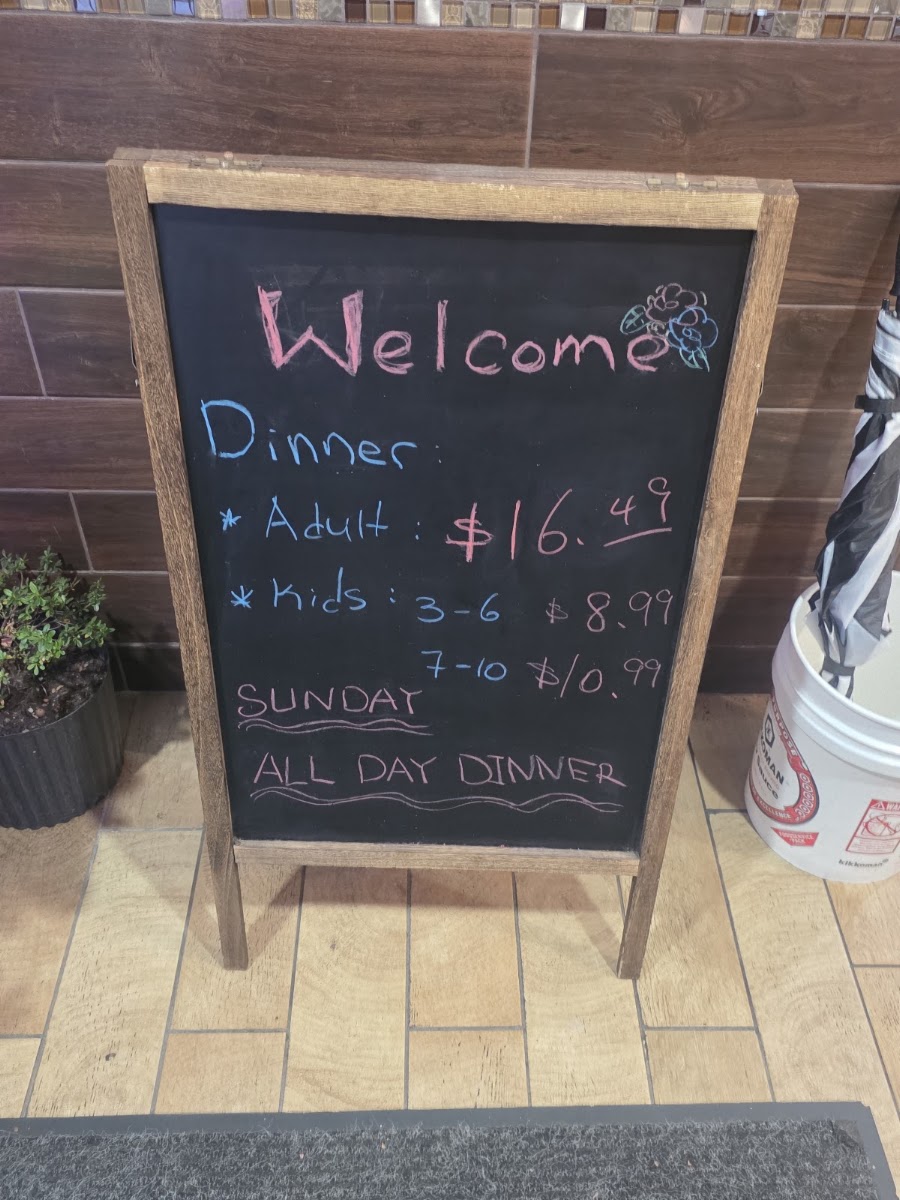 Welcome
Dinner:
* Adult: $16.49
* Kids: 3-6 $8.99
7-10 $10.99
SUNDAY
ALL DAY DINNER
kikkoman